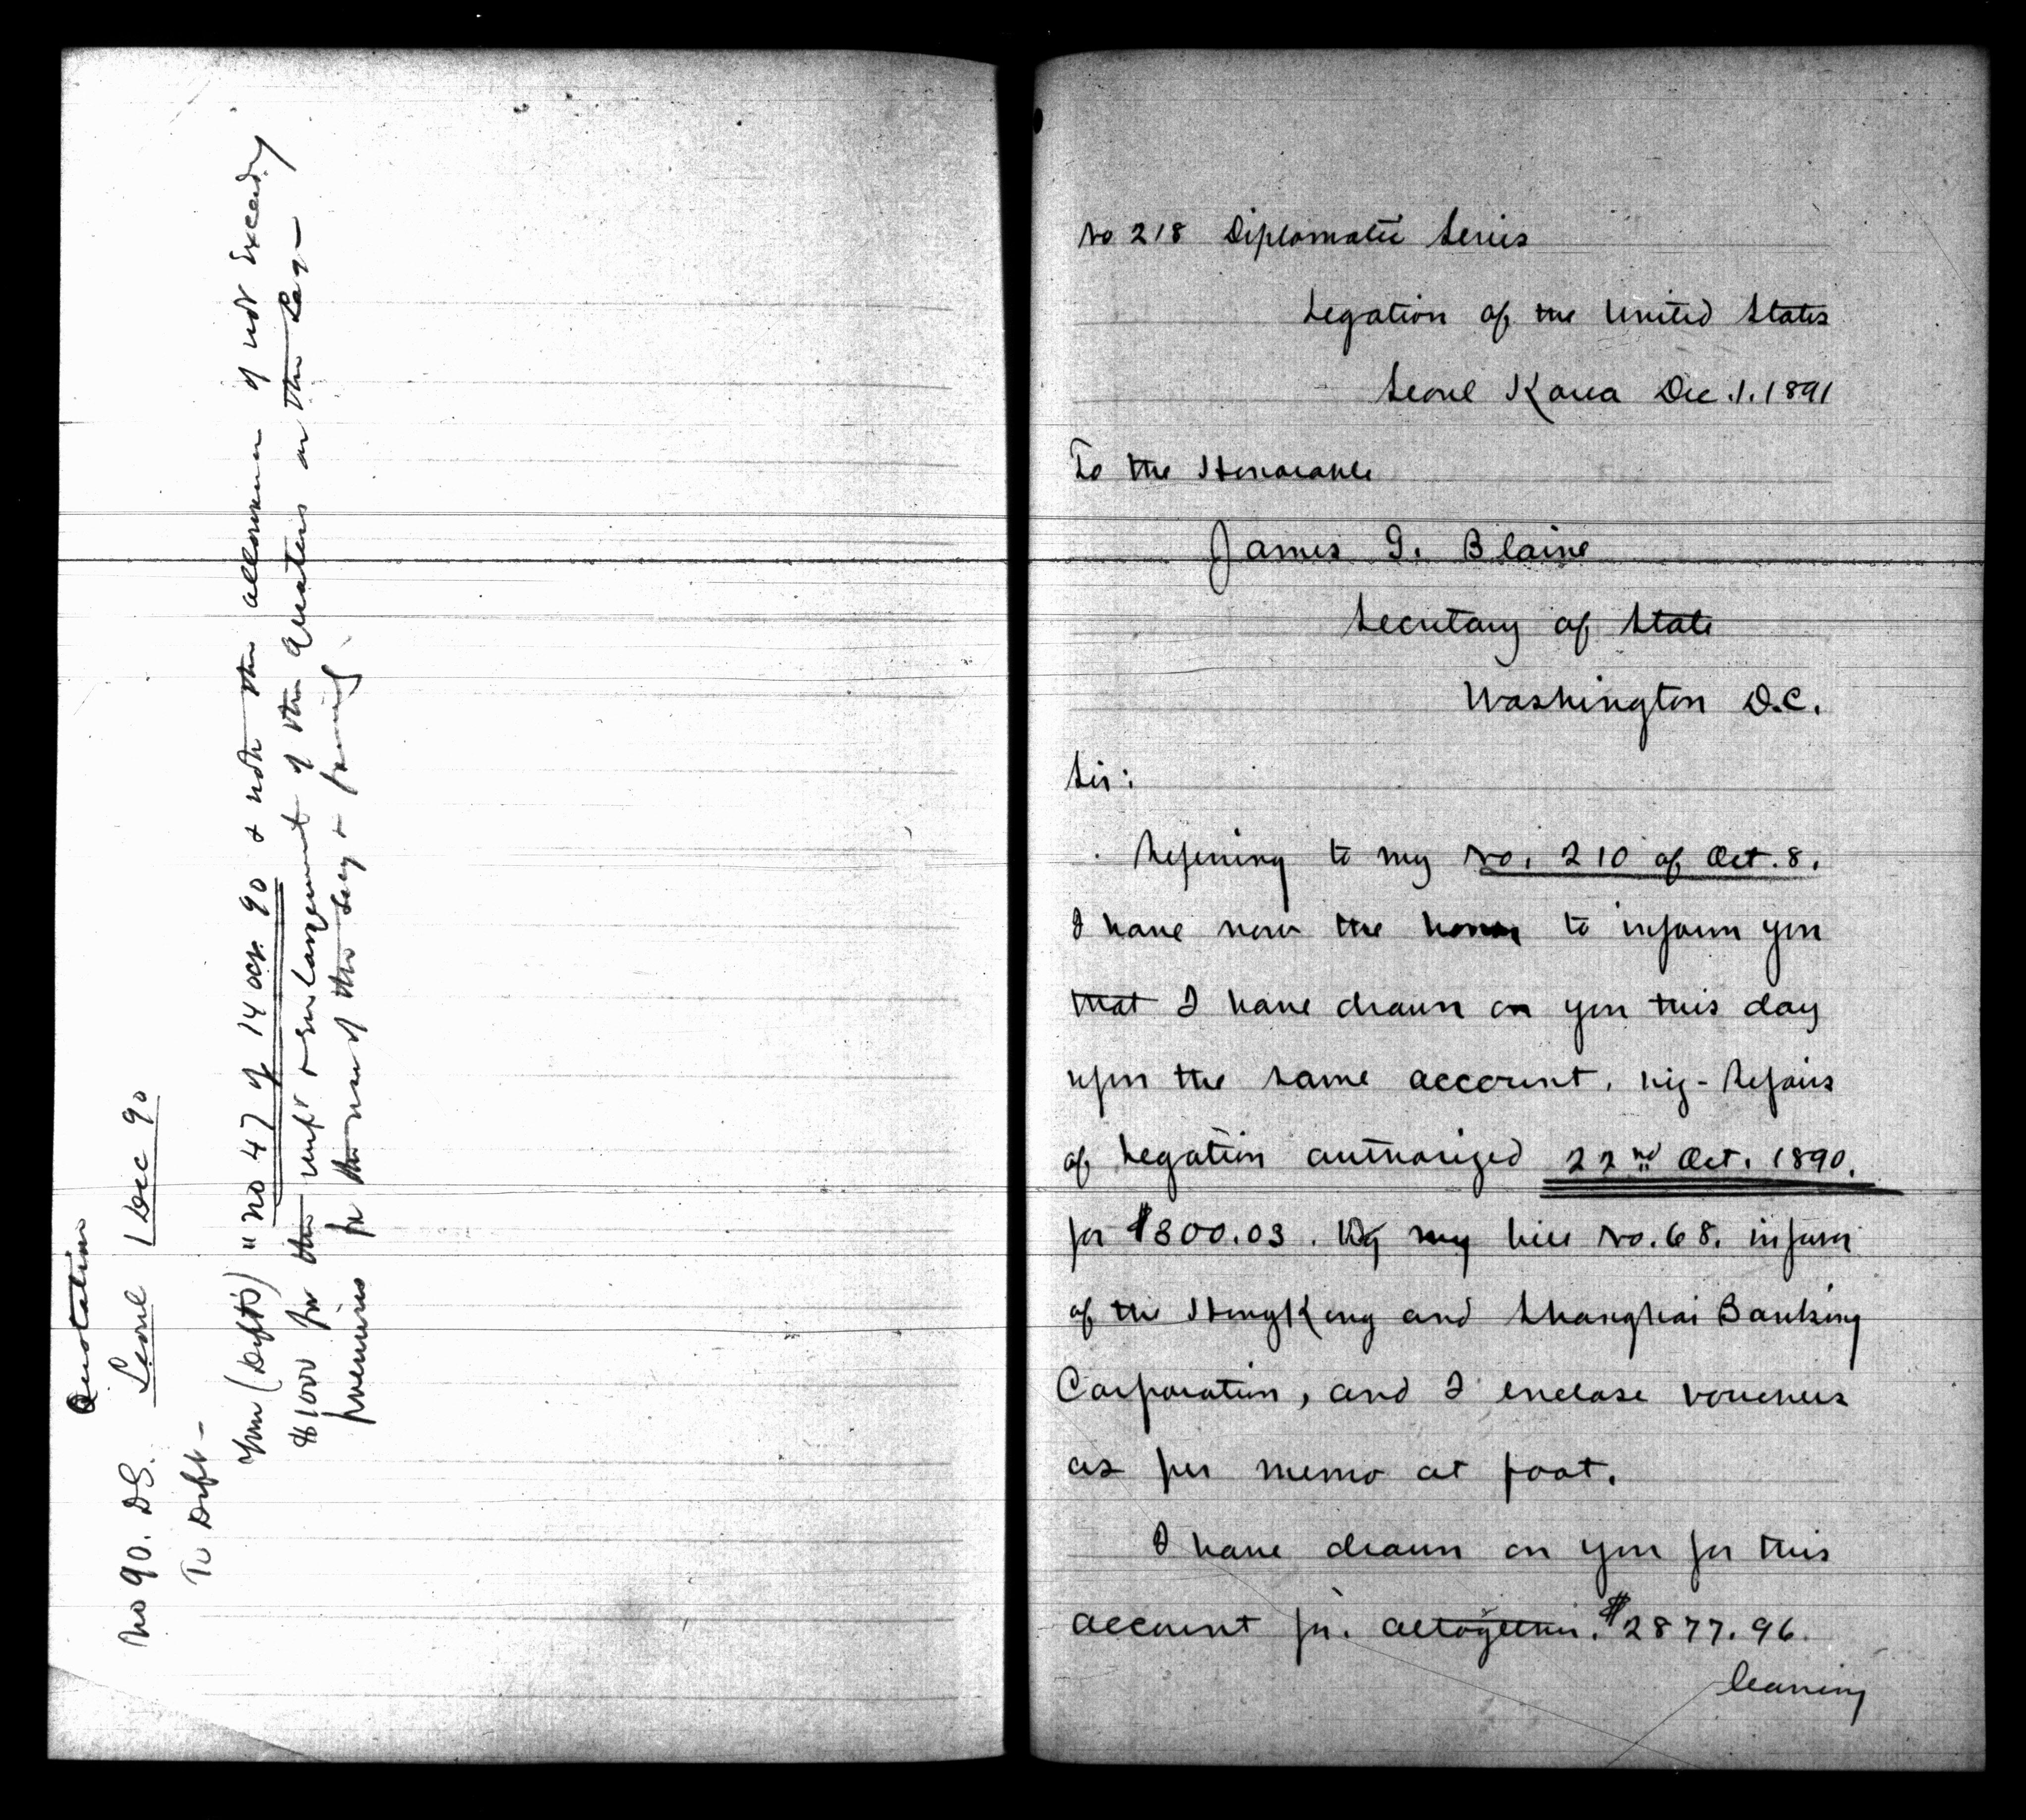 Quotation
No 90. D.S. Seoul 1 Dec 90
To Dept -
Your (Dept's) "no 47 of 14 Oct. 90 & note the allowance of not Exceeding
$1000 for the impt & enlargement of the Quarters on the Leg-
premises for the use of the Secy & family
No 218 Diplomatic Series
Legation of the United States
Seoul Korea Dec. 1. 1891
To the Honorable
James G. Blaine
Secretary of State
Washington D.C.
Sir:
Referring to my No. 210 of Oct. 8.
I have now the honor to inform you
that I have drawn on you this day
upon the same account, viz- Repairs
of Legation authorized 22nd Oct. 1890.
for $300.03. By my bill No. 68. in favor
of the HongKong and Shanghai Banking
Corporation, and I enclose vouchers
as per memo at foot.
I have drawn on you for this
account for. altogether. $2877.96.
leaving